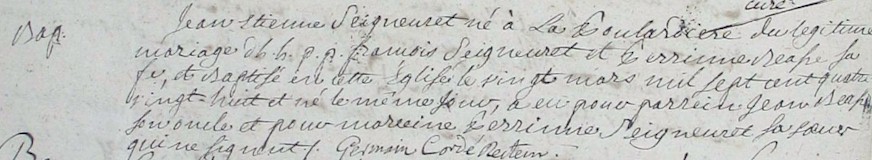 curé
Bap. Jean Etienne Seigneuret né à La Poulardiere du legitime
mariage d'h. h. p. p. francois Seigneuret et Perrinne Beasse sa
fe, et Baptisé en cette Église le vingt mars mil sept cent quatre
vingt-huit et né le même jour, a eu pour parrein Jean Beasse
son oncle et pour mareine Perrinne Seigneuret sa sœur
qui ne signent. Germain Cordé